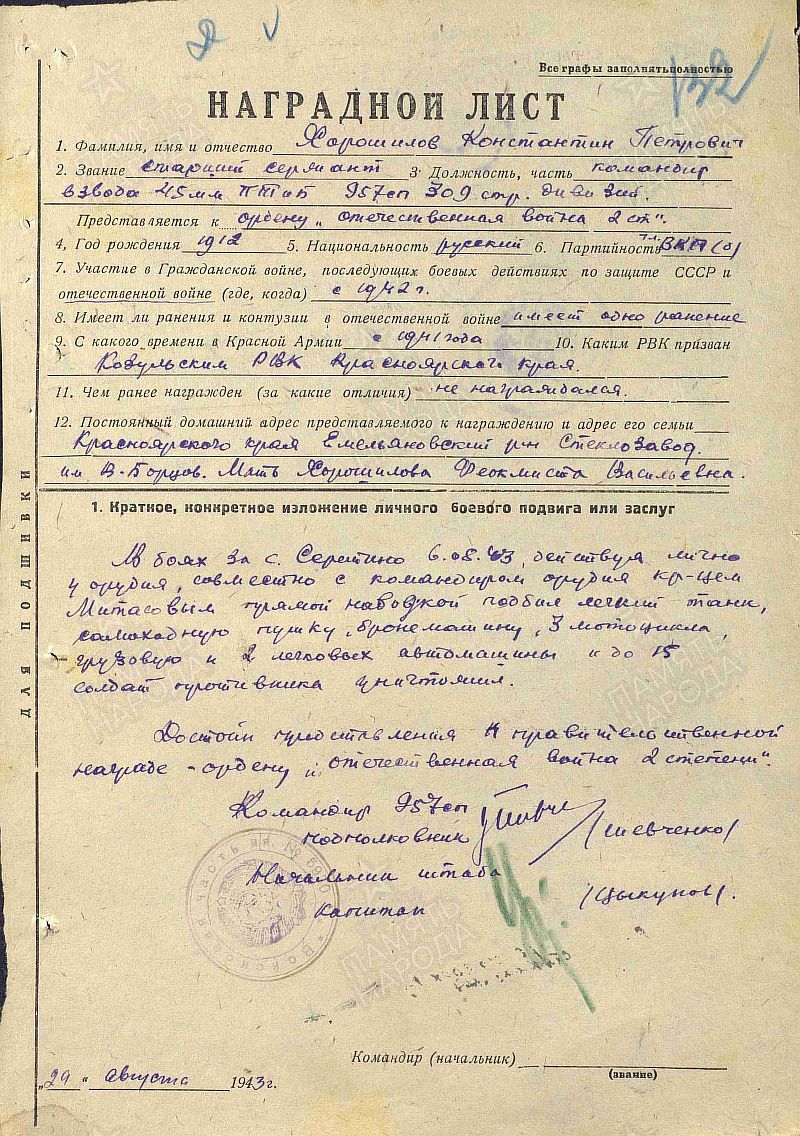 132
Все графы заполнять полностью
НАГРАДНОЙ ЛИСТ
1. Фамилия, имя и отчество Хорошилов Константин Петрович
2. Звание старший сержант 3. Должность, часть командир
взвода 45мм ПТ 957сп 309 стр. дивизии.
Представляется к ордену „отечественная война 2 ст".
4, Год рождения 1912 5. Национальность русский 6. Партийность ВКП(б)
7. Участие в Гражданской войне, последующих боевых действиях по защите СССР и
отечественной войне (где, когда) с 1942 г.
8. Имеет ли ранения и контузии в отечественной войне имеет одно ранение
9. С какого времени в Красной Армии с 1941 года 10. Каким РВК призван
Козульским РВК Красноярского края.
11. Чем ранее награжден (за какие отличия) не награждался.
12. Постоянный домашний адрес представляемого к награждению и адрес его семьи
Красноярского края Емельяновский р-н Стеклозавод.
им В-Борцов. Мать Хорошилова Феоктиста Васильевна.
1. Краткое, конкретное изложение личного боевого подвига или заслуг
ДЛЯ ПОДШИВКИ
В боях за с. 6.08.43 действуя лично
у орудия, совместно с командиром орудия кр-цем
Митасовым прямой наводкой подбил легкий танк,
самоходную пушку, бронемашину, 3 мотоцикла,
грузовую и 2 легковых автомашины и до 15
солдат противника уничтожил.
Достоин представления к правительственной
награде - ордену „отечественная война 2 степени".
Командир 957сп
подполковник /Шевченко/
Начальник штаба
капитан /Цыкунов/.
Войсковая часть
Командир (начальник)
(звание)
„29" августа 1943г.
ПАМЯТЬ НАРОДА